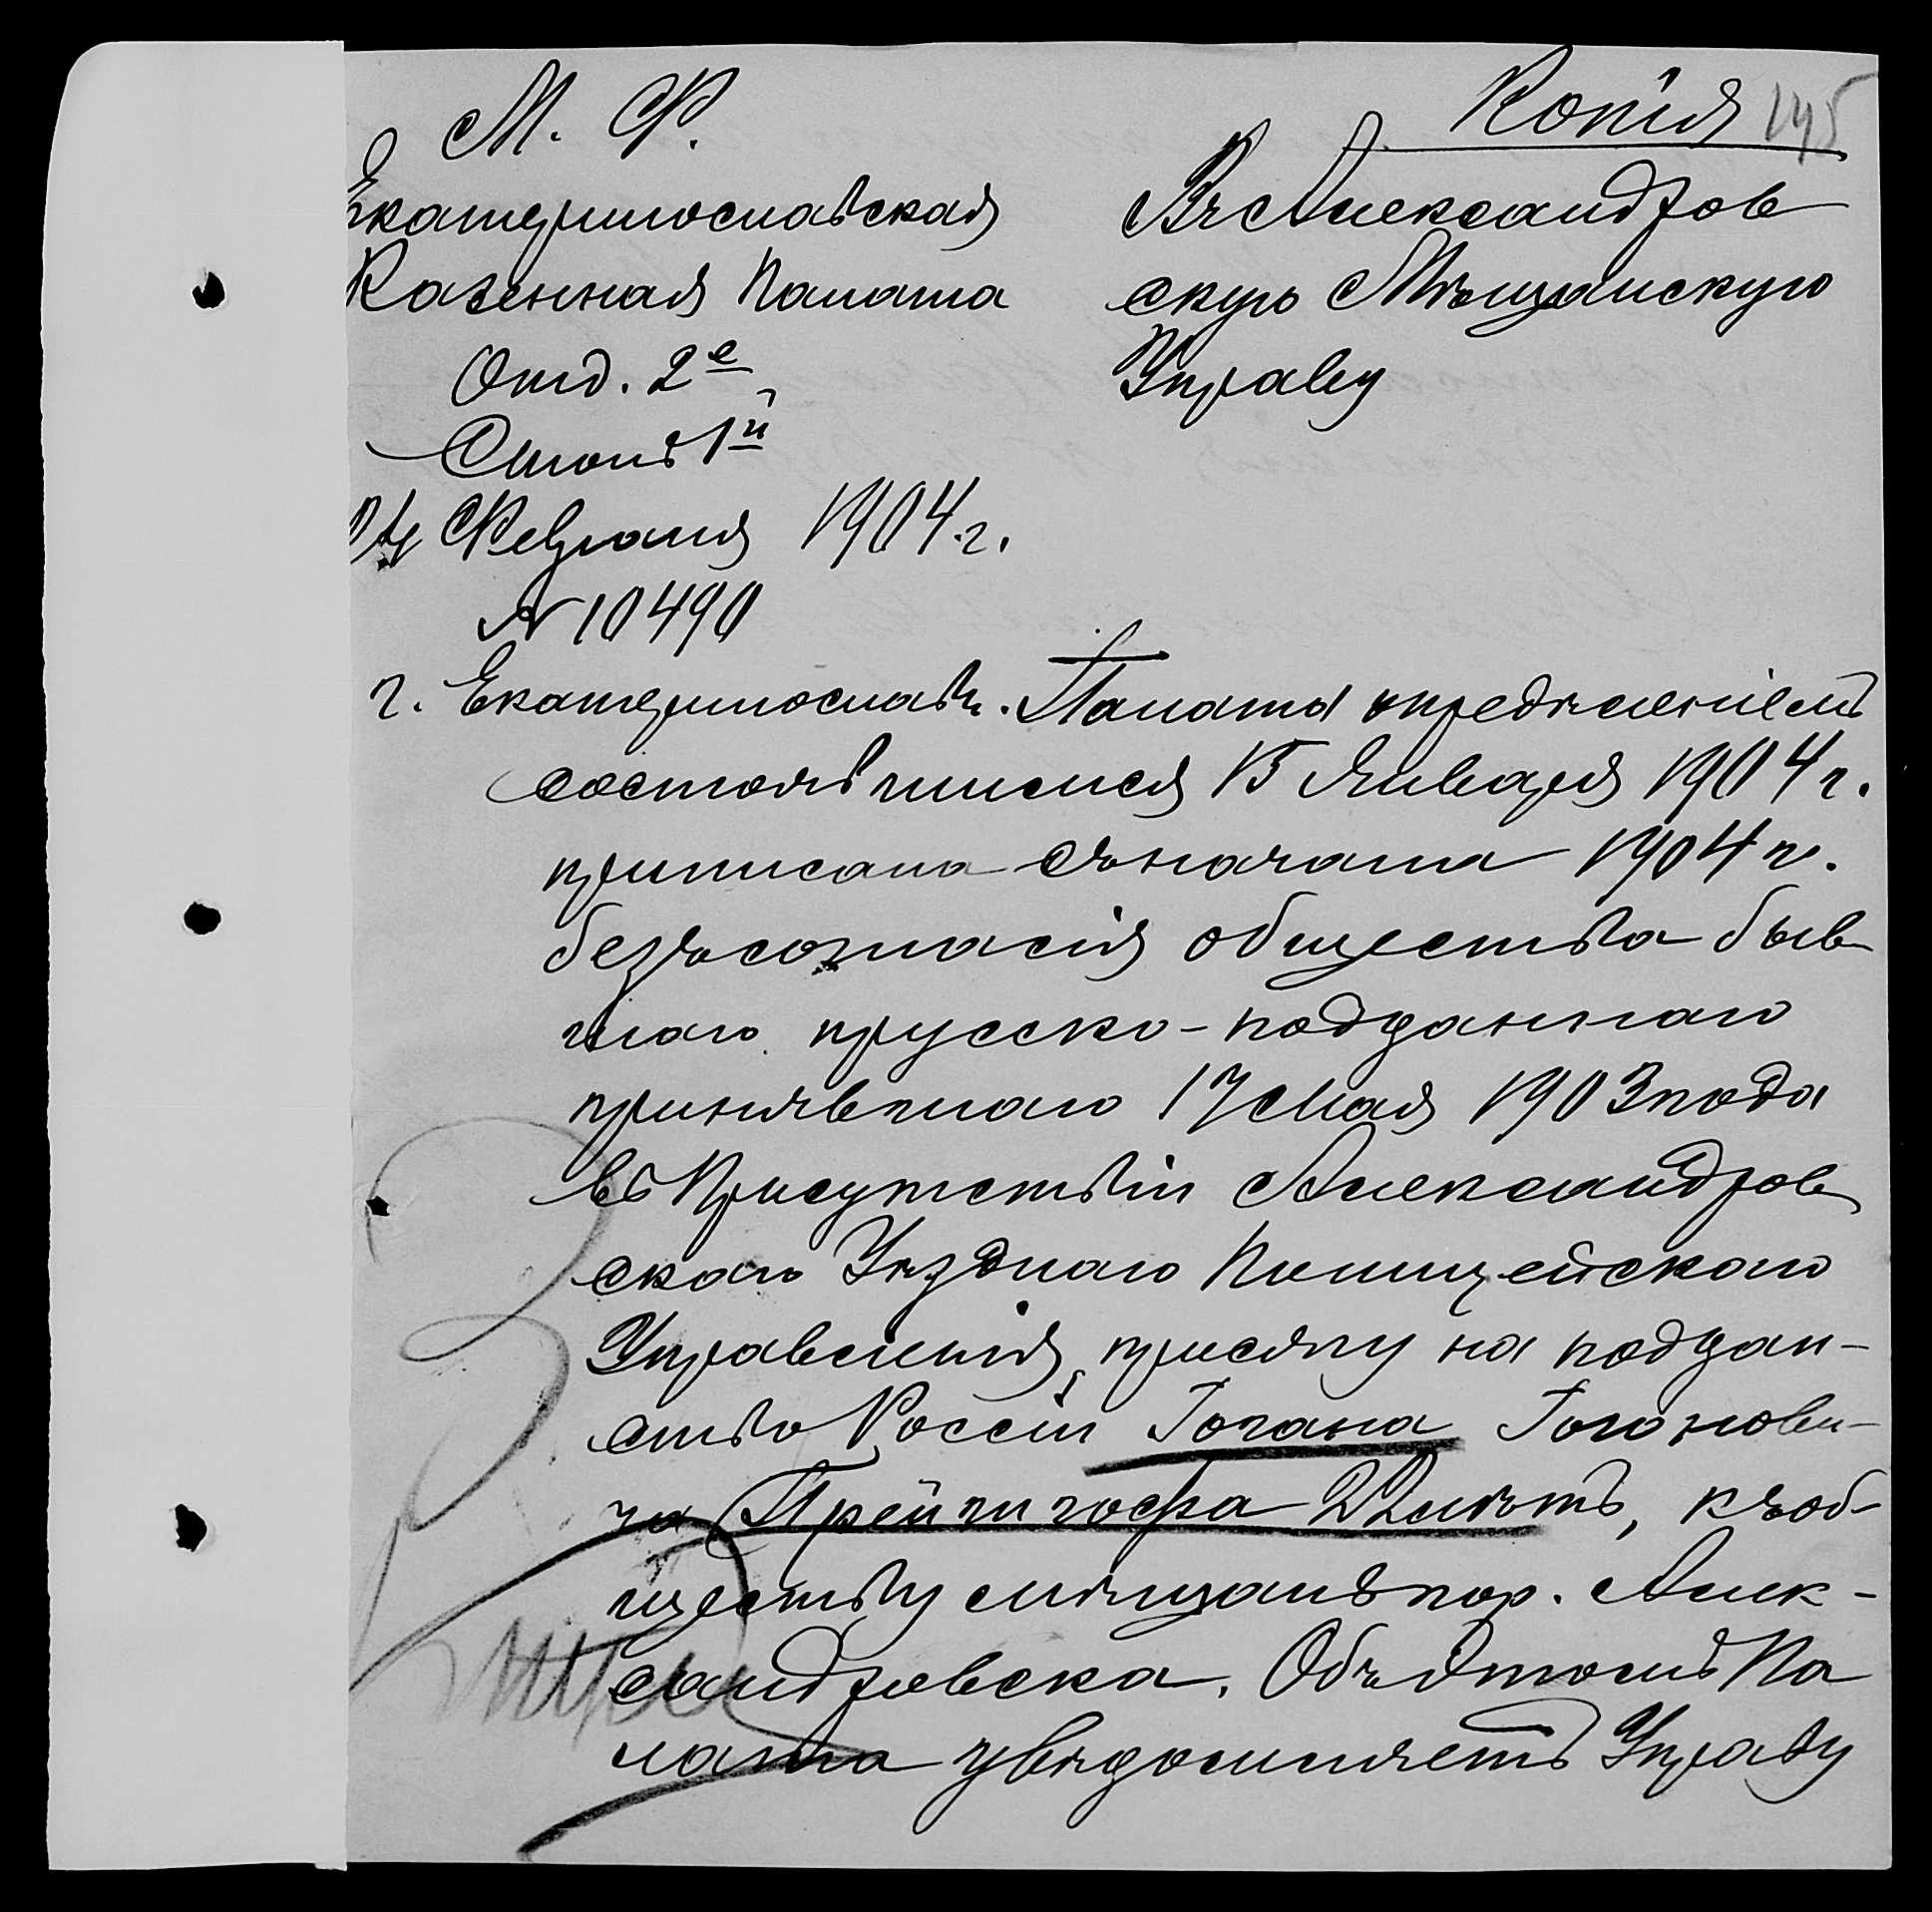 Копія 145
М. Ф.
Екатеринославская
Казенная Палата
Отд. 2е
Столъ 1й
Февраля 1904 г.
N 10490
г. Екатеринославъ.
Въ Александров
скую Мѣщанскую
Управу
Палаты опредѣленіемъ
состоявшимся 15 Января 1904 г.
приписана съ начала 1904 г.
безъ согласія общества быв
шаго прусско-подданнаго
принявшаго 17 Мая 1903 года
въ Присутствіи Александров
скаго Уѣзднаго Полицейскаго
Управленія, присягу на поддан-
ство Россіи Іогана Іоганови-
ча Прейшгофа Дикъ, къ об-
ществу мѣщанъ гор. Алек-
сандровска. Объ этомъ Па
лата увѣдомляетъ Управу